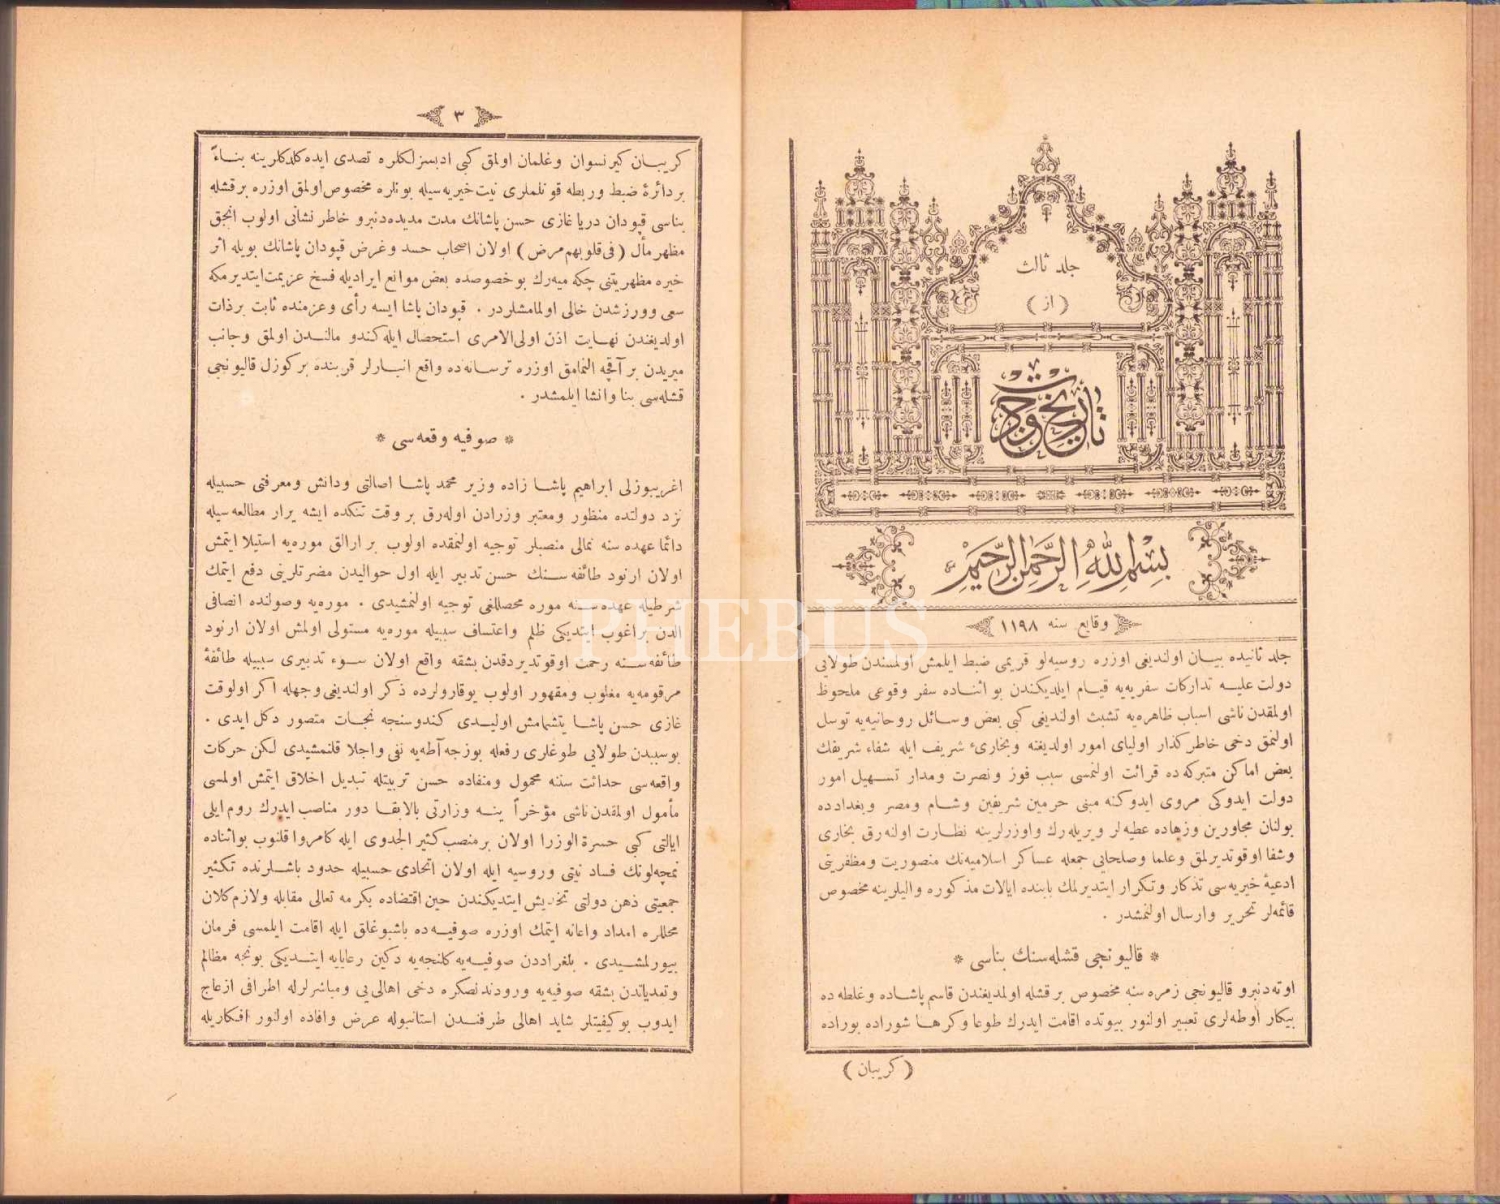 جلد ثالث
( از )
تاریخ جودت
بسم الله الرحمن الرحیم
وقایع سنه ١١٩٨
جلد ثانیده بیان اولندیغی اوزره روسیه‌لو قریمی ضبط ایلمش اولمسندن طولایی
دولت علیه تدارکات سفریه‌یه قیام ایلدیکندن بو اثناده سفر وقوعی ملحوظ
اولمقدن ناشی اسباب ظاهره‌یه تشبث اولندیغی کبی بعض وسائل روحانیه‌یه توسل
اولنمق دخی خاطرکذار اولیای امور اولدیغنه وبخاریٔ شریف ایله شفاء شریفك
بعض اماکن متبرکه‌ده قرائت اولنمسی سبب فوز ونصرت ومدار تسهیل امور
دولت ایدوکی مروی ایدوکنه مبنی حرمین شریفین وشام ومصر وبغدادده
بولنان مجاورین وزهاده عطیه‌لر ویریله‌رك واوزرلرینه نظارت اولنه‌رق بخاری
وشفا اوقوتدیرلمق وعلما وصلحایی جمعله عساکر اسلامیه‌نك منصوریت ومظفریتی
ادعیهٔ خیریه‌سی تذکار وتکرار ایتدیرلمك بابنده ایالات مذکوره والیلرینه مخصوص
قائمه‌لر تحریر وارسال اولنمشدر .
* قالیونجی قشله‌سنك بناسی *
اوته‌دنبرو قالیونجی زمره‌سنه مخصوص بر قشله اولمدیغندن قاسم پاشاده وغلطه ده
بیکار اوطه‌لری تعبیر اولنور بیوتده اقامت ایدرك طوعا وکرها شوراده بوراده
( کریبان )
٣
کریبان کیر نسوان وغلمان اولمق کبی ادبسزلکلره تصدی ایده‌کلدکلرینه بناءً
بر دائرهٔ ضبط وربطه قونلملری نیت خیریه‌سیله بونلره مخصوص اولمق اوزره بر قشله
بناسی قپودان دریا غازی حسن پاشانك مدت مدیده‌دنبرو خاطرنشانی اولوب انجق
مظهر مآل ( فی قلوبهم مرض ) اولان اصحاب حسد وغرض قپودان پاشانك بویله اثر
خیره مظهریتنی چکه میه‌رك بوخصوصده بعض موانع ایرادیله فسخ عزیمت ایتدیرمکه
سعی وورزشدن خالی اولمامشلردر . قپودان پاشا ایسه رأی وعزمنده ثابت برذات
اولدیغندن نهایت اذن اولی‌الامری استحصال ایله کندو مالندن اولمق وجانب
میریدن بر آقچه النمامق اوزره ترسانه‌ده واقع انبارلر قربنده بر کوزل قالیونجی
قشله‌سی بنا وانشا ایلمشدر .
* صوفیه وقعه‌سی *
اغریبوزلی ابراهیم پاشا زاده وزیر محمد پاشا اصالتی ودانش ومعرفتی حسبیله
نزد دولتده منظور ومعتبر وزرادن اوله‌رق بر وقت تنکده ایشه یرار مطالعه‌سیله
دائما عهده سنه نمالی منصبلر توجیه اولنمقده اولوب بر ارالق موره‌یه استیلا ایتمش
اولان ارنود طائفه سنك حسن تدبیر ایله اول حوالیدن مضرتلرینی دفع ایتمك
شرطیله عهده سنه موره محصللغی توجیه اولنمشیدی . موره‌یه وصولنده انصافی
الدن براغوب ایتدیکی ظلم واعتساف سببیله موره‌یه مستولی اولمش اولان ارنود
طائفه سنه رحمت اوقوتدیردقدن بشقه واقع اولان سوء تدبیری سببیله طائفهٔ
مرقومه‌یه مغلوب ومقهور اولوب یوقارولرده ذکر اولندیغی وجهله اکر اولوقت
غازی حسن پاشا یتشمامش اولیدی کندوسنجه نجات متصور دکل ایدی .
بوسببدن طولایی طوغلری رفعله بوزجه آطه‌یه نفی واجلا قلنمشیدی لکن حرکات
واقعه‌سی حداثت سننه محمول ومنفاده حسن تربیتله تبدیل اخلاق ایتمش اولمسی
مأمول اولمقدن ناشی مؤخراً ینه وزارتی بالابقا دور مناصب ایدرك روم ایلی
ایالتی کبی حسرة الوزرا اولان بر منصب کثیر الجدوی ایله کامروا قلنوب بو اثناده
نمچه‌لونك فساد نیتی وروسیه ایله اولان اتحادی حسبیله حدود باشلرنده تکثیر
جمعیتی ذهن دولتی تخدیش ایتدیکندن حین اقتضاده بکرمه تعالی مقابله ولازم کلان
محللره امداد واعانه ایتمك اوزره صوفیه‌ده باشبوغلق ایله اقامت ایلمسی فرمان
بیورلمشیدی . بلغراددن صوفیه‌یه کلنجه‌یه دکین رعایایه ایتدیکی بونجه مظالم
وتعدیاتدن بشقه صوفیه‌یه ورودندنصکره دخی اهالی‌یی ومباشرلرله اطرافی ازعاج
ایدوب بوکیفیتلر شاید اهالی طرفندن استانبوله عرض وافاده اولنور افکاریله
PHEBUS